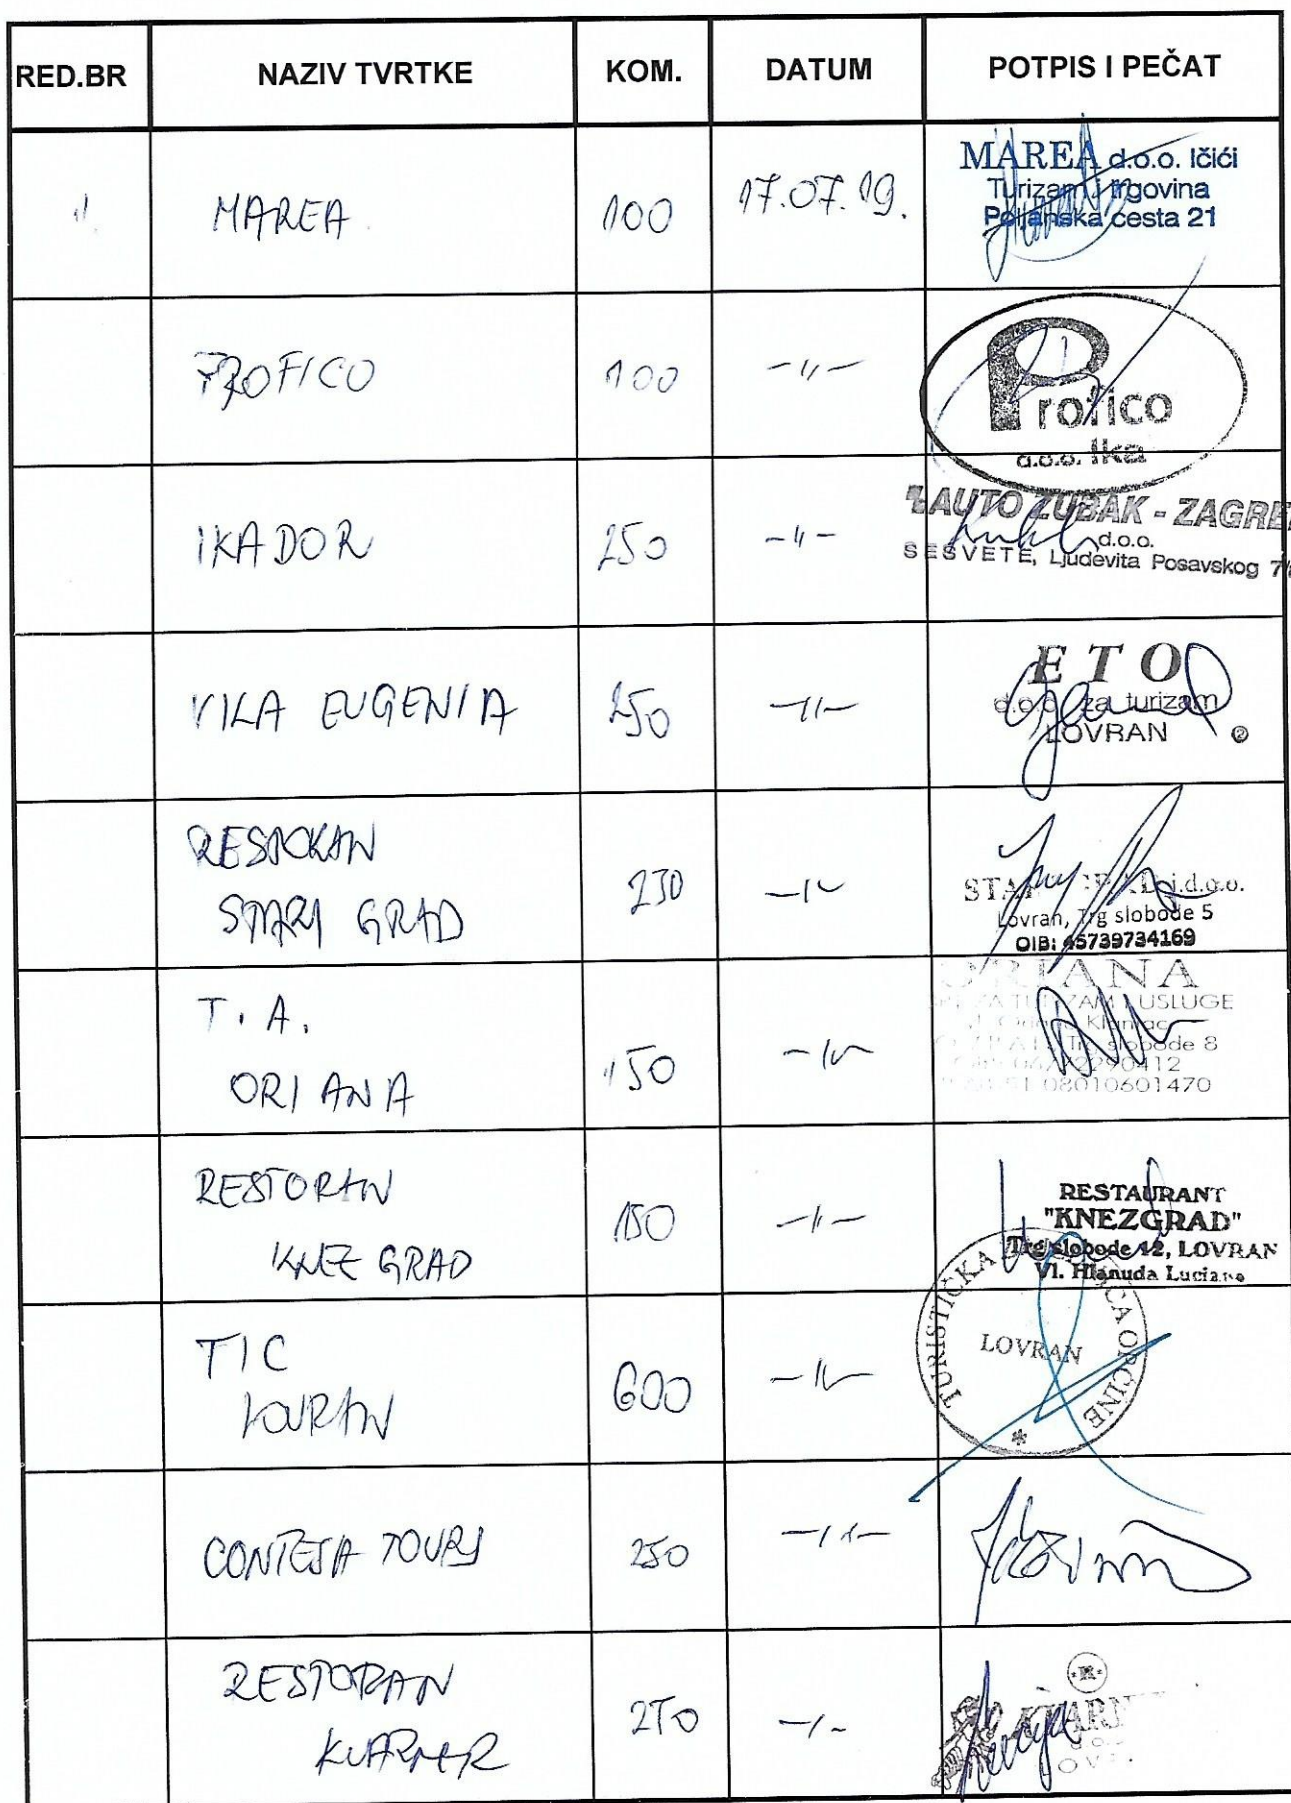 RED.BR NAZIV TVRTKE KOM. DATUM POTPIS I PEČAT
MAREA 100 17.07.19.
MAREA d.o.o. Ičići
Turizam i trgovina
Poljanska cesta 21
PROFICO 100 -11-
Profico
d.o.o. Ika
IKADOR 250 -11-
AUTO ZUBAK - ZAGREB
d.o.o.
SESVETE, Ljudevita Posavskog
VILA EUGENIA 250 -11-
ETO
d.o.o. za turizam
LOVRAN 2
RESTORAN
STARI GRAD 250 -11-
STARI GRAD j.d.o.o.
Lovran, Trg slobode 5
OIB: 45739734169
T. A.
ORIANA 150 -11-
ORIANA
ZA TURIZAM I USLUGE
Trg slobode 8
08010601470
RESTORAN
KNEZGRAD 150 -11-
RESTAURANT
"KNEZGRAD"
Trg slobode 12, LOVRAN
Vl. Hlanuda Luciano
TIC
LOVRAN 600 -11-
TURISTIČKA ZAJEDNICA OPĆINE
LOVRAN
CONTESA TOURS 250 -11-
RESTORAN
KVARNER 250 -11-